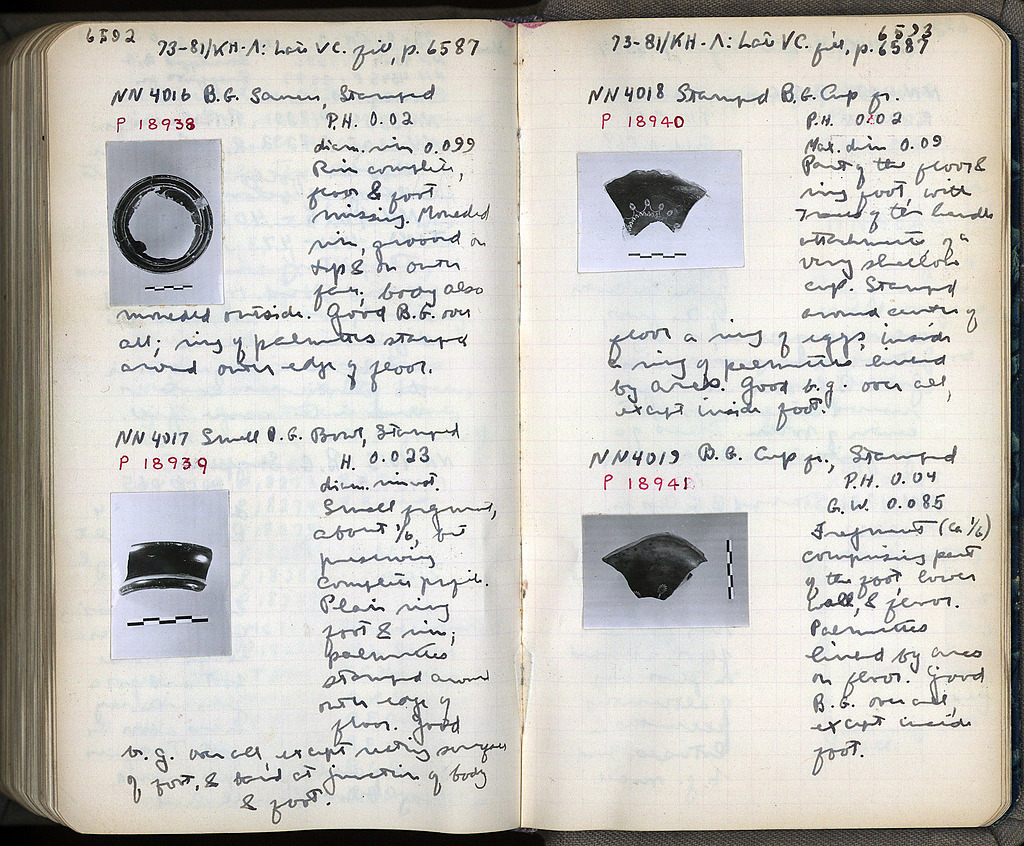 6592
73-81/KH-Λ: Late V C. fill, p. 6587
NN 4016 B.G. Saucer, Stamped
P 18938
P.H. 0.02
diam. rim 0.099
Rim complete,
floor & foot
missing. Moulded
rim, grooved on
top & on outer
face; body also
moulded outside. Good B.G. over
all; ring of palmettes stamped
around outer edge of floor.
NN 4017 Small B.G. Bowl, Stamped
P 18939
H. 0.023
diam. not
Small fragment,
about 1/6, but
preserving
complete profile.
Plain ring
foot & rim;
palmettes
stamped around
outer edge of
floor. Good
b.g. over all, except resting surface
of foot, & band at junction of body
& foot.
6593
73-81/KH-Λ: Late V C. fill, p. 6587
NN 4018 Stamped B.G. Cup fr.
P 18940
P.H. 0.02
Max. dim 0.09
Part of the floor &
ring foot, with
traces of the handle
attachment, of a
very shallow
cup. Stamped
around center of
floor a ring of eggs, inside
a ring of palmettes linked
by arcs. Good b.g. over all,
except inside foot.
NN4019 B.G. Cup fr., Stamped
P 18941
P.H. 0.04
G.W. 0.085
Fragment (ca 1/6)
comprising part
of the foot, lower
wall, & floor.
Palmettes
linked by arcs
on floor. Good
B.G. over all,
except inside
foot.